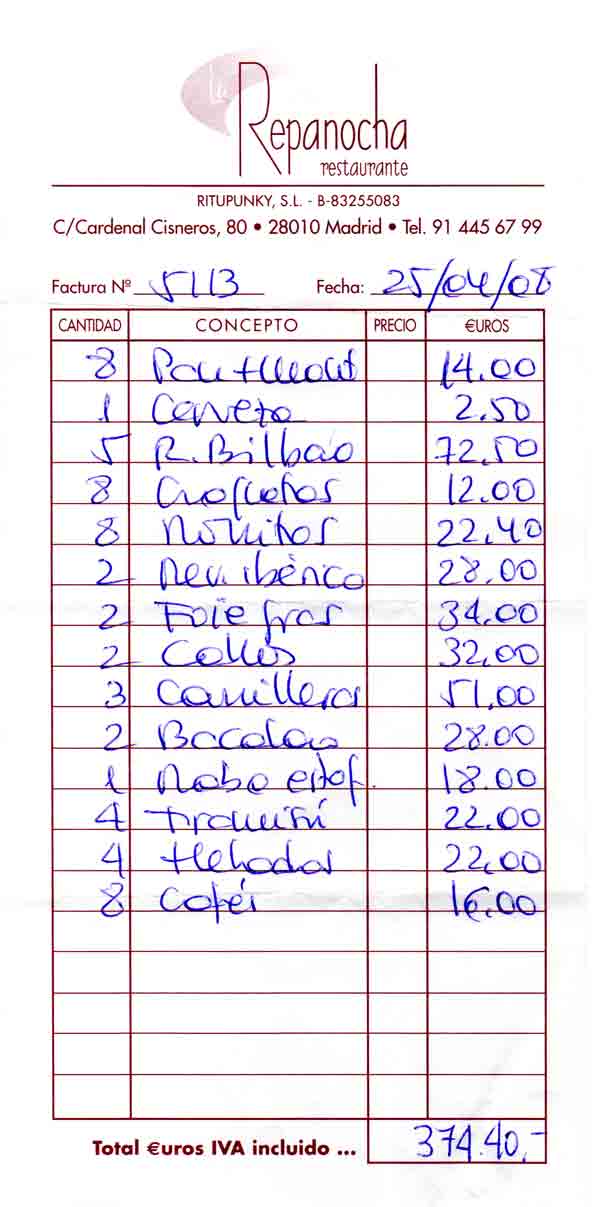 La
Repanocha
restaurante
RITUPUNKY, S.L. - B-83255083
C/Cardenal Cisneros, 80 • 28010 Madrid • Tel. 91 445 67 99
Factura Nº 5113 Fecha: 25/04/08
CANTIDAD CONCEPTO PRECIO €UROS
8 Pan+Mant 14.00
1 Cerveza 2.50
5 R. Bilbao 72.50
8 Croquetas 12.00
8 22.40
2 Rev. ibérico 28.00
2 Foie gras 34.00
2 Callos 32.00
3 Carrilleras 51.00
2 Bacalao 28.00
1 Rabo estof. 18.00
4 Tiramisú 22.00
4 Helados 22.00
8 Cafés 16.00
Total €uros IVA incluido ... 374.40,-